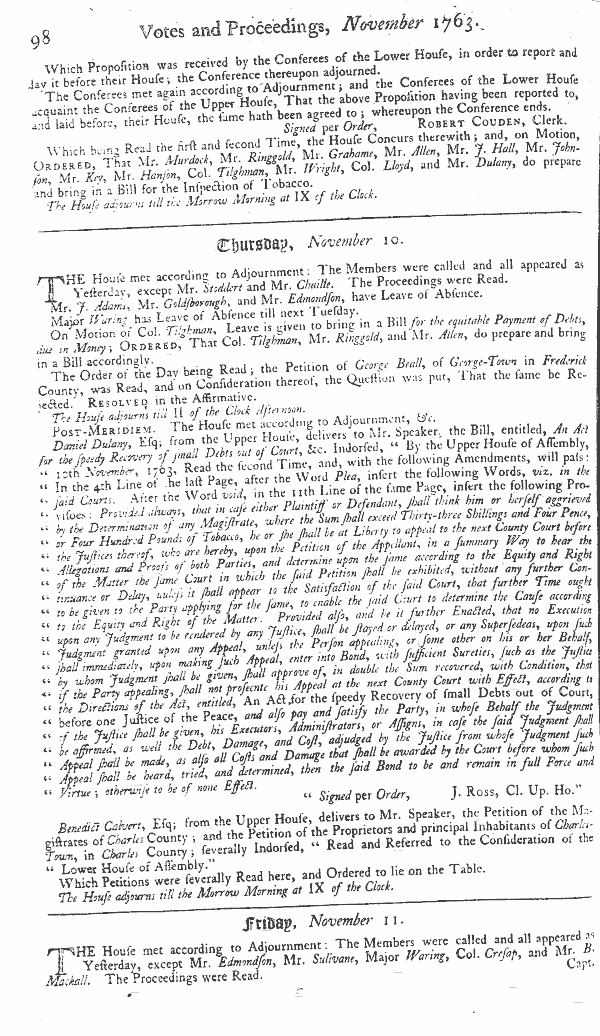 98 Votes and Proceedings, November 1763.
Which Propoſition was received by the Conferees of the Lower Houſe, in order to report and
lay it before their Houſe; the Conference thereupon adjourned.
The Conferees met again according to Adjournment; and the Conferees of the Lower Houſe
acquaint the Conferees of the Upper Houſe, That the above Propoſition having been reported to,
and laid before, their Houſe, the ſame hath been agreed to; whereupon the Conference ends.
Signed per Order, ROBERT COUDEN, Clerk.
Which being Read the firſt and ſecond Time, the Houſe Concurs therewith; and, on Motion,
ORDERED, That Mr. Murdock, Mr. Ringgold, Mr. Grahame, Mr. Allen, Mr. J. Hall, Mr. John-
ſon, Mr. Key, Mr. Hanſon, Col. Tilghman, Mr. Wright, Col. Lloyd, and Mr. Dulany, do prepare
and bring in a Bill for the Inſpection of Tobacco.
The Houſe adjourns till the Morrow Morning at IX of the Clock.
Thurſday, November 10.
THE Houſe met according to Adjournment: The Members were called and all appeared as
Yeſterday, except Mr. Stoddert and Mr. Chaille. The Proceedings were Read.
Mr. J. Adams, Mr. Goldſborough, and Mr. Edmondſon, have Leave of Abſence.
Major Waring has Leave of Abſence till next Tueſday.
On Motion of Col. Tilghman, Leave is given to bring in a Bill for the equitable Payment of Debts,
due in Money; ORDERED, That Col. Tilghman, Mr. Ringgold, and Mr. Allen, do prepare and bring
in a Bill accordingly.
The Order of the Day being Read; the Petition of George Beall, of George-Town in Frederick
County, was Read, and on Conſideration thereof, the Queſtion was put, That the ſame be Re-
jected. RESOLVED in the Affirmative.
The Houſe adjourns till II of the Clock Afternoon.
POST-MERIDIEM. The Houſe met according to Adjournment, &c.
Daniel Dulany, Eſq; from the Upper Houſe, delivers to Mr. Speaker, the Bill, entitled, An Act
for the ſpeedy Recovery of ſmall Debts out of Court, &c. Indorſed, “ By the Upper Houſe of Aſſembly,
“ 10th November, 1763, Read the ſecond Time, and, with the following Amendments, will paſs:
“ In the 4th Line of the laſt Page, after the Word Plea, inſert the following Words, viz. in the
“ ſaid Courts. After the Word void, in the 11th Line of the ſame Page, inſert the following Pro-
“ viſoes: Provided always, that in caſe either Plaintiff or Defendant, ſhall think him or herſelf aggrieved
“ by the Determination of any Magiſtrate, where the Sum ſhall exceed Thirty-three Shillings and Four Pence,
“ or Four Hundred Pounds of Tobacco, he or ſhe ſhall be at Liberty to appeal to the next County Court before
“ the Juſtices thereof, who are hereby, upon the Petition of the Appellant, in a ſummary Way to hear the
“ Allegations and Proofs of both Parties, and determine upon the ſame according to the Equity and Right
“ of the Matter the ſame Court in which the ſaid Petition ſhall be exhibited, without any further Con-
“ tinuance or Delay, unleſs it ſhall appear to the Satisfaction of the ſaid Court, that further Time ought
“ to be given to the Party applying for the ſame, to enable the ſaid Court to determine the Cauſe according
“ to the Equity and Right of the Matter. Provided alſo, and be it further Enacted, that no Execution
“ upon any Judgment to be rendered by any Juſtice, ſhall be ſtayed or delayed, or any Superſedeas, upon ſuch
“ Judgment granted upon any Appeal, unleſs the Perſon appealing, or ſome other on his or her Behalf,
“ ſhall immediately, upon making ſuch Appeal, enter into Bond, with ſufficient Sureties, ſuch as the Juſtice
“ by whom Judgment ſhall be given, ſhall approve of, in double the Sum recovered, with Condition, that
“ if the Party appealing, ſhall not proſecute his Appeal at the next County Court with Effect, according to
“ the Directions of the Act, entitled, An Act for the ſpeedy Recovery of ſmall Debts out of Court,
“ before one Juſtice of the Peace, and alſo pay and ſatisfy the Party, in whoſe Behalf the Judgment
“ of the Juſtice ſhall be given, his Executors, Adminiſtrators, or Aſſigns, in caſe the ſaid Judgment ſhall
“ be affirmed, as well the Debt, Damage, and Coſt, adjudged by the Juſtice from whoſe Judgment ſuch
“ Appeal ſhall be made, as alſo all Coſts and Damage that ſhall be awarded by the Court before whom ſuch
“ Appeal ſhall be heard, tried, and determined, then the ſaid Bond to be and remain in full Force and
“ Virtue; otherwiſe to be of none Effect.
“ Signed per Order, J. Ross, Cl. Up. Ho.”
Benedict Calvert, Eſq; from the Upper Houſe, delivers to Mr. Speaker, the Petition of the Ma-
giſtrates of Charles County; and the Petition of the Proprietors and principal Inhabitants of Charles-
Town, in Charles County; ſeverally Indorſed, “ Read and Referred to the Conſideration of the
“ Lower Houſe of Aſſembly.”
Which Petitions were ſeverally Read here, and Ordered to lie on the Table.
The Houſe adjourns till the Morrow Morning at IX of the Clock.
Friday, November 11.
THE Houſe met according to Adjournment: The Members were called and all appeared as
Yeſterday, except Mr. Edmondſon, Mr. Sulivane, Major Waring, Col. Creſap, and Mr. B.
Mackall. The Proceedings were Read.
Capt.